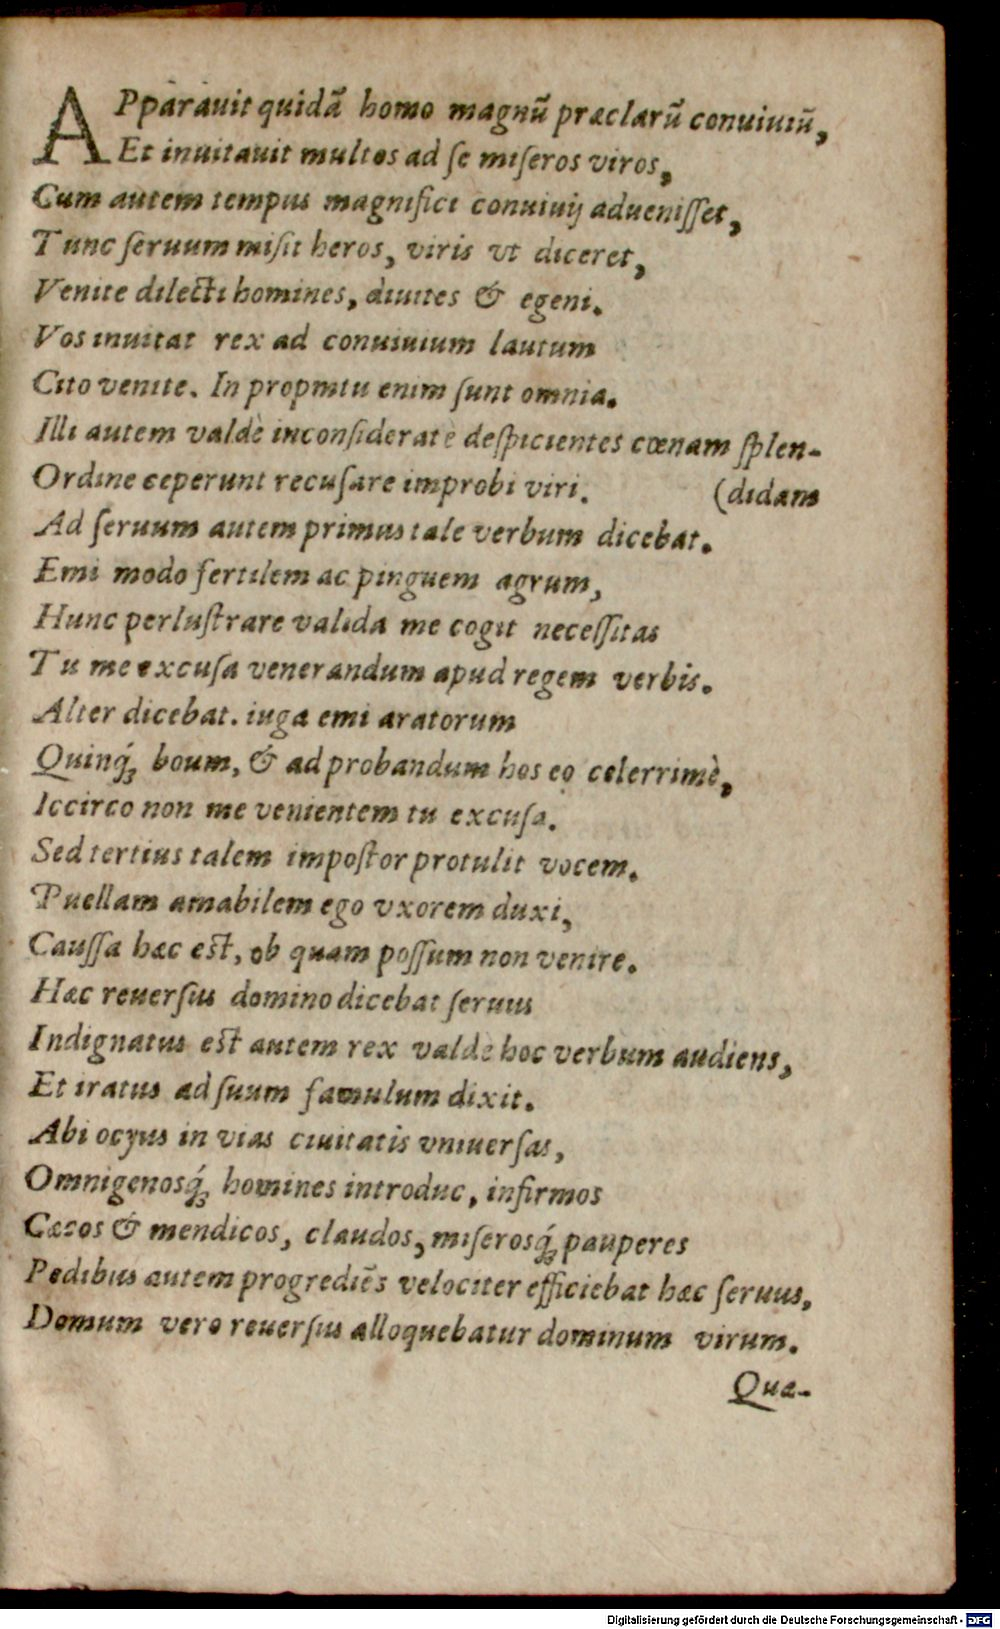 APparauit quidã homo magnũ præclarũ conuiuiũ,
Et inuitauit multos ad ſe miſeros viros,
Cum autem tempus magnifici conuiuij adueniſſet,
Tunc ſeruum miſit heros, viris vt diceret,
Venite dilecti homines, diuites & egeni.
Vos inuitat rex ad conuiuium lautum
Cito venite. In propmtu enim ſunt omnia.
Illi autem valdè inconſideratè deſpicientes cœnam ſplen-
Ordine ceperunt recuſare improbi viri. (didam
Ad ſeruum autem primus tale verbum dicebat.
Emi modo fertilem ac pinguem agrum,
Hunc perluſtrare valida me cogit neceſſitas
Tu me excuſa venerandum apud regem verbis.
Alter dicebat. iuga emi aratorum
Quinq́; boum, & ad probandum hos eo celerrimè,
Iccirco non me venientem tu excuſa.
Sed tertius talem impoſtor protulit vocem.
Puellam amabilem ego vxorem duxi,
Cauſſa hæc eſt, ob quam poſſum non venire.
Hæc reuerſus domino dicebat ſeruus
Indignatus eſt autem rex valde hoc verbum audiens,
Et iratus ad ſuum famulum dixit.
Abi ocyus in vias ciuitatis vniuerſas,
Omnigenosq́; homines introduc, infirmos
Cæcos & mendicos, claudos, miſerosq́; pauperes
Pedibus autem progrediẽs velociter efficiebat hæc ſeruus,
Domum vero reuerſus alloquebatur dominum virum.
Quæ-
Digitalisierung gefördert durch die Deutsche Forschungsgemeinschaft - DFG